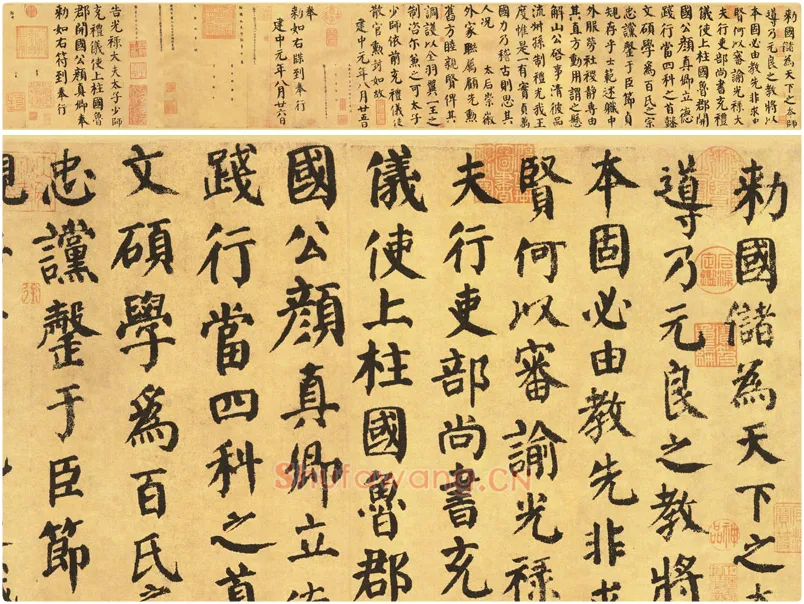 勑國儲為天下之本師
導乃元良之教將以
本固必由教先非求忠
賢何以審諭光祿大
夫行吏部尚書充禮
儀使上柱國魯郡開
國公顏真卿立德
踐行當四科之首懿
文碩學為百氏之宗
忠讜罄于臣節貞
規存乎士範述職中
外服勞社稷靜專由
其直方動用謂之懸
解山公啓事清彼品
流叔孫制禮光我王
度惟是一有實貞萬
國力乃稽古則思其
人況 太后崇徽
外家聯屬顧先勳
舊方睦親賢俾其
調護以全羽翼一王之
制咨尔兼之可太子
少師依前充禮儀使
散官勳封如故
建中元年八月廿五日
奉
勑如右牒到奉行
建中元年八月廿六日
告光祿大夫太子少師
充禮儀使上柱國魯
郡開國公顏真卿奉
勑如右符到奉行
勑國儲為天下之本
導乃元良之教將
本固必由教先非求
賢何以審諭光祿
夫行吏部尚書充
儀使上柱國魯郡
國公顏真卿立德
踐行當四科之首
文碩學爲百氏之
忠讜罄于臣節
Shufawang.CN